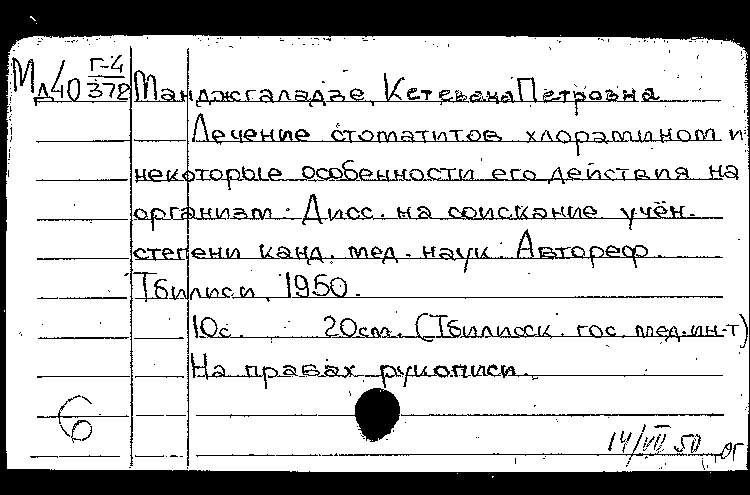 Мд40 Г-4/372 Манджгаладзе, Кетевана Петровна
Лечение стоматитов хлорамином и
некоторые особенности его действия на
организм: Дисс. на соискание учён.
степени канд. мед. наук: Автореф.
Тбилиси, 1950.
10с. 20см. (Тбилисск. гос. мед. ин-т)
На правах рукописи.
6
14/VII 50 ог